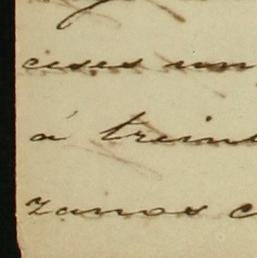 ceses un
á trein
zanos c